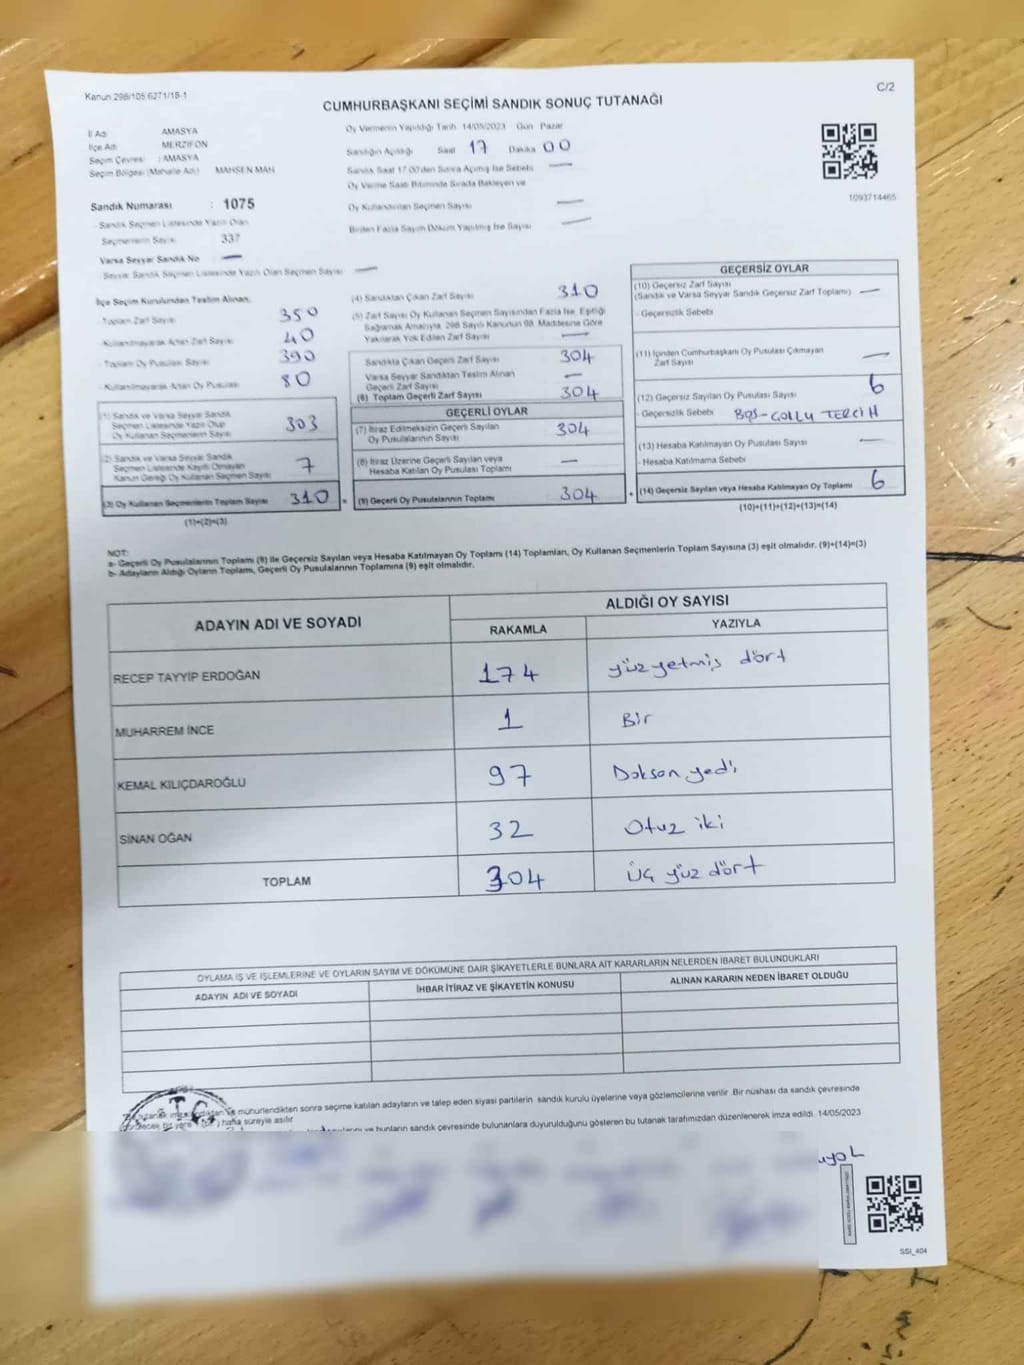 Kanun 298/105 6271/18-1
C/2
CUMHURBAŞKANI SEÇİMİ SANDIK SONUÇ TUTANAĞI
İl Adı AMASYA
İlçe Adı MERZİFON
Seçim Çevresi : AMASYA
Seçim Bölgesi (Mahalle Adı) MAHSEN MAH
Sandık Numarası : 1075
- Sandık Seçmen Listesinde Yazılı Olan
Seçmenlerin Sayısı 337
Varsa Seyyar Sandık No —
- Seyyar Sandık Seçmen Listesinde Yazılı Olan Seçmen Sayısı —
Oy Vermenin Yapıldığı Tarih 14/05/2023 Gün Pazar
Sandığın Açıldığı Saat 17 Dakika 00
Sandık Saat 17.00'den Sonra Açılmış İse Sebebi —
Oy Verme Saati Bitiminde Sırada Bekleyen ve
Oy Kullandırılan Seçmen Sayısı —
Birden Fazla Sayım Döküm Yapılmış İse Sayısı —
1093714465
İlçe Seçim Kurulundan Teslim Alınan;
- Toplam Zarf Sayısı 350
- Kullanılmayarak Artan Zarf Sayısı 40
- Toplam Oy Pusulası Sayısı 390
- Kullanılmayarak Artan Oy Pusulası 80
(1) Sandık ve Varsa Seyyar Sandık
Seçmen Listesinde Yazılı Olup
Oy Kullanan Seçmenlerin Sayısı 303
(2) Sandık ve Varsa Seyyar Sandık
Seçmen Listesinde Kayıtlı Olmayan
Kanun Gereği Oy Kullanan Seçmen Sayısı 7
(3) Oy Kullanan Seçmenlerin Toplam Sayısı 310
(1)+(2)=(3)
(4) Sandıktan Çıkan Zarf Sayısı 310
(5) Zarf Sayısı Oy Kullanan Seçmen Sayısından Fazla İse, Eşitliği
Sağlamak Amacıyla, 298 Sayılı Kanunun 98. Maddesine Göre
Yakılarak Yok Edilen Zarf Sayısı —
Sandıkta Çıkan Geçerli Zarf Sayısı 304
Varsa Seyyar Sandıktan Teslim Alınan
Geçerli Zarf Sayısı —
(6) Toplam Geçerli Zarf Sayısı 304
GEÇERLİ OYLAR
(7) İtiraz Edilmeksizin Geçerli Sayılan
Oy Pusulalarının Sayısı 304
(8) İtiraz Üzerine Geçerli Sayılan veya
Hesaba Katılan Oy Pusulası Toplamı —
= (9) Geçerli Oy Pusulalarının Toplamı 304
GEÇERSİZ OYLAR
(10) Geçersiz Zarf Sayısı
(Sandık ve Varsa Seyyar Sandık Geçersiz Zarf Toplamı) —
- Geçersizlik Sebebi
(11) İçinden Cumhurbaşkanı Oy Pusulası Çıkmayan
Zarf Sayısı —
(12) Geçersiz Sayılan Oy Pusulası Sayısı 6
- Geçersizlik Sebebi BOŞ-ÇOKLU TERCİH
(13) Hesaba Katılmayan Oy Pusulası Sayısı —
- Hesaba Katılmama Sebebi
+ (14) Geçersiz Sayılan veya Hesaba Katılmayan Oy Toplamı 6
(10)+(11)+(12)+(13)=(14)
NOT:
a- Geçerli Oy Pusulalarının Toplamı (9) ile Geçersiz Sayılan veya Hesaba Katılmayan Oy Toplamı (14) Toplamları, Oy Kullanan Seçmenlerin Toplam Sayısına (3) eşit olmalıdır. (9)+(14)=(3)
b- Adayların Aldığı Oyların Toplamı, Geçerli Oy Pusulalarının Toplamına (9) eşit olmalıdır.
ADAYIN ADI VE SOYADI
ALDIĞI OY SAYISI
RAKAMLA YAZIYLA
RECEP TAYYİP ERDOĞAN 174 yüz yetmiş dört
MUHARREM İNCE 1 Bir
KEMAL KILIÇDAROĞLU 97 Doksan yedi
SİNAN OĞAN 32 Otuz iki
TOPLAM 304 üç yüz dört
OYLAMA İŞ VE İŞLEMLERİNE VE OYLARIN SAYIM VE DÖKÜMÜNE DAİR ŞİKAYETLERLE BUNLARA AİT KARARLARIN NELERDEN İBARET BULUNDUKLARI
ADAYIN ADI VE SOYADI İHBAR İTİRAZ VE ŞİKAYETİN KONUSU ALINAN KARARIN NEDEN İBARET OLDUĞU
tutanak ve mühürlendikten sonra seçime katılan adayların ve talep eden siyasi partilerin sandık kurulu üyelerine veya gözlemcilerine verilir. Bir nüshası da sandık çevresinde
bir yere hafta süreyle asılır
ve bunların sandık çevresinde bulunanlara duyurulduğunu gösteren bu tutanak tarafımızdan düzenlenerek imza edildi. 14/05/2023
T.C.
SSI_404